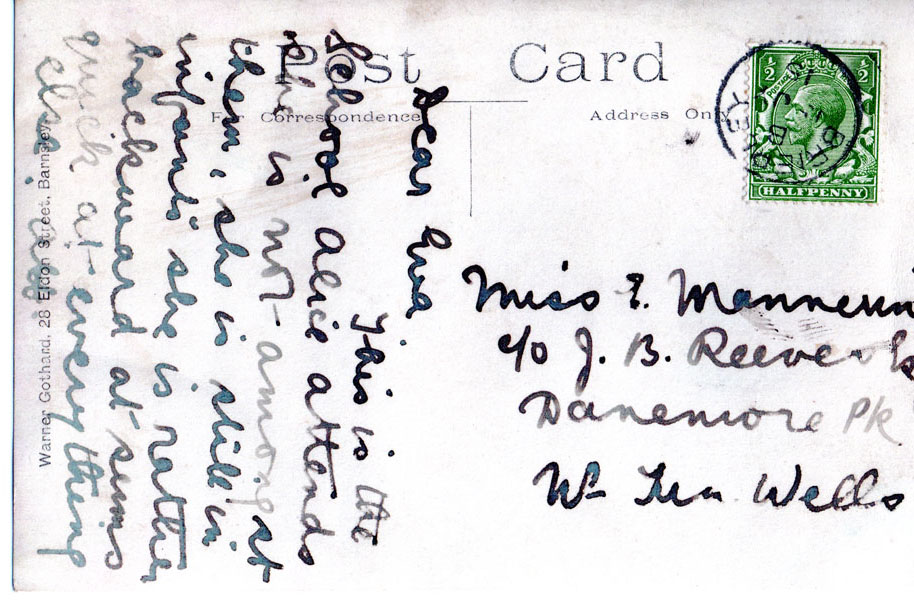 Post Card
For Correspondence
Address Only
HALFPENNY
Warner Gothard, 28 Eldon Street, Barnsley
Dear Eva
This is the
School Alice attends
she is not among st
them, she is still in
infants she is rather
backward at sums
quick at everything
else
Miss E. Mannerin
c/o J. B. Reeves Es
Danemore Pk
Nr Tun Wells